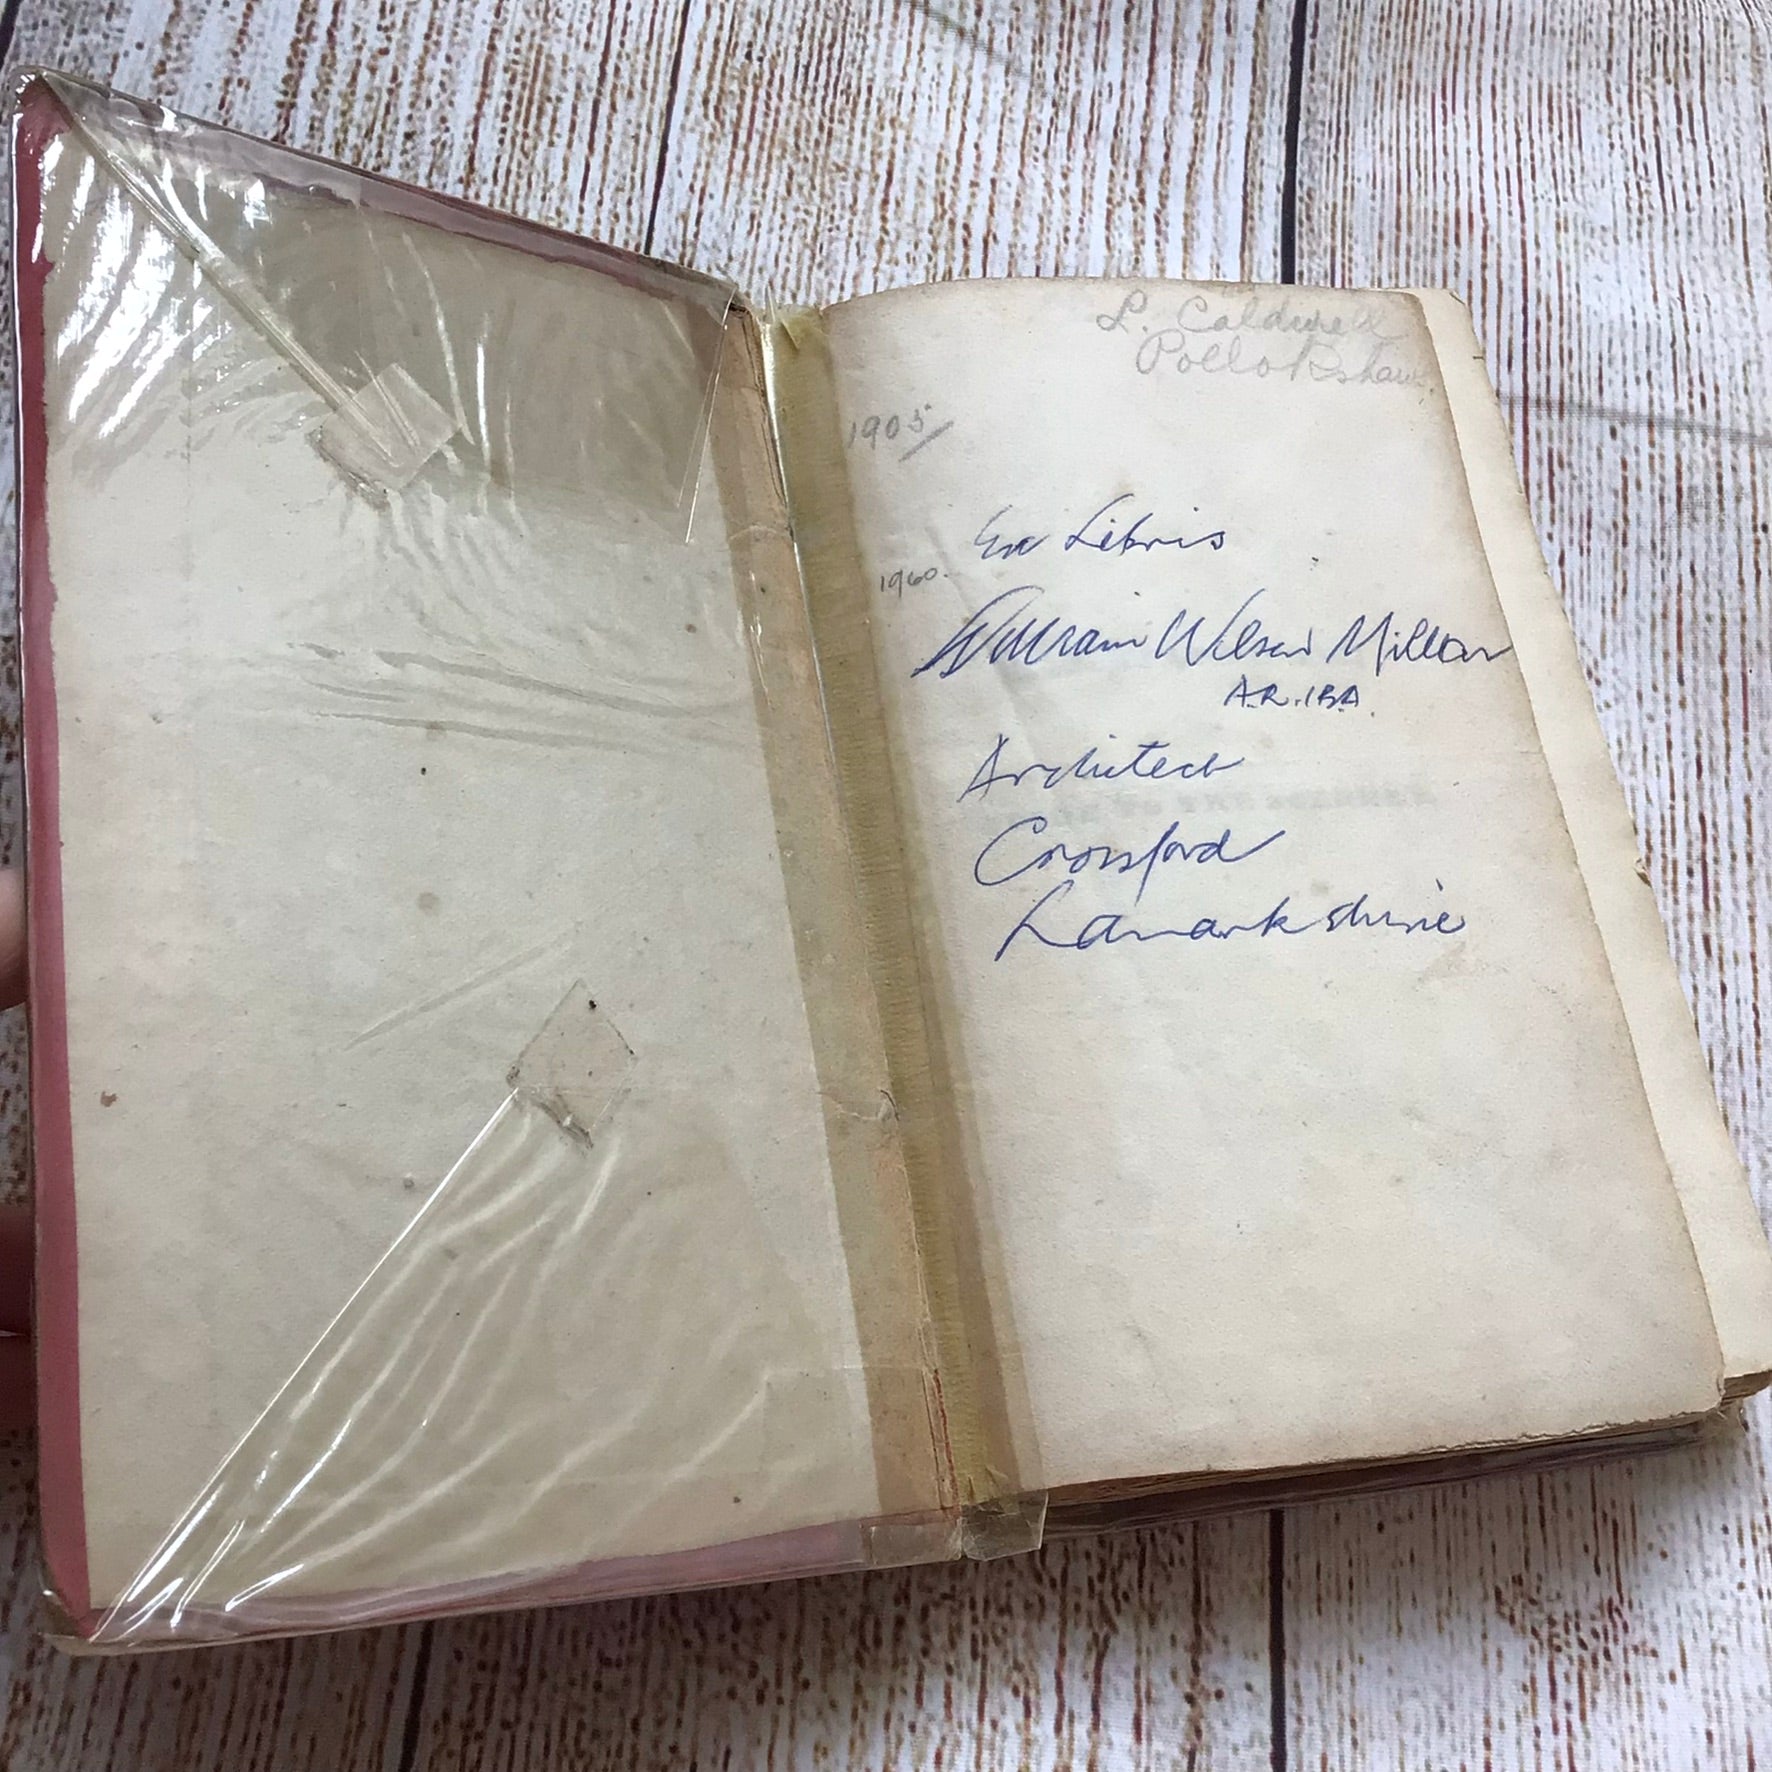 L. Caldwell
Pollokshaws.
1905
Ex Libris
1960.
William Wilson Millar
A.R.IBA.
Architect
Crossford
Lanarkshire